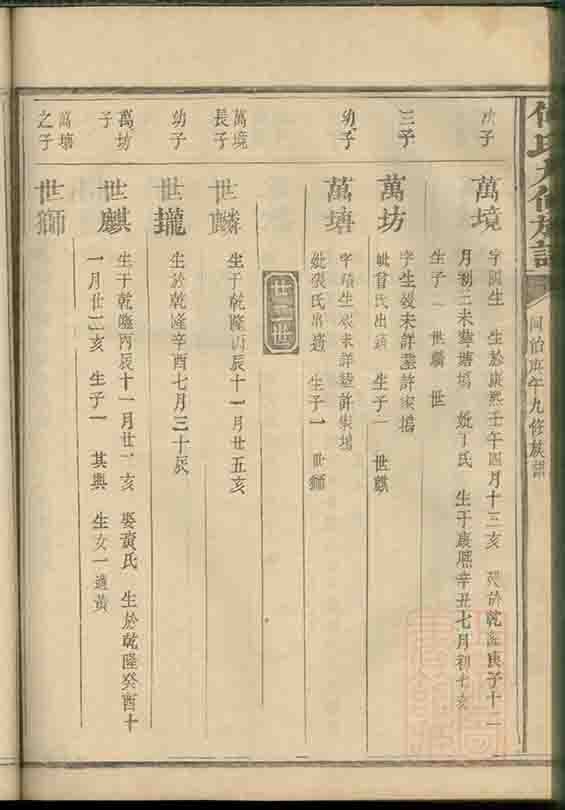 何氏九修族譜
同治庚午九修族譜
次子
萬境
字 生 生於康熙壬午四月十三亥 歿於乾隆庚子十二
月初二未葬塘塢 妣丁氏 生于康熙辛丑七月初七亥
生子二 世麟 世
三子
萬坊
字生 歿未詳葬許家塢
妣曾氏出 生子一 世麒
幼子
萬塘
字 生歿未詳葬許家塢
妣張氏 生子一 世獅
廿二世
萬境長子
世麟
生于乾隆丙辰十一月廿五亥
幼子
世
生於乾隆辛酉七月三十辰
萬坊子
世麒
生于乾隆丙辰十一月廿二亥 娶黄氏 生於乾隆癸酉十
一月廿二亥 生子一 其興 生女一適黄
萬塘之子
世獅